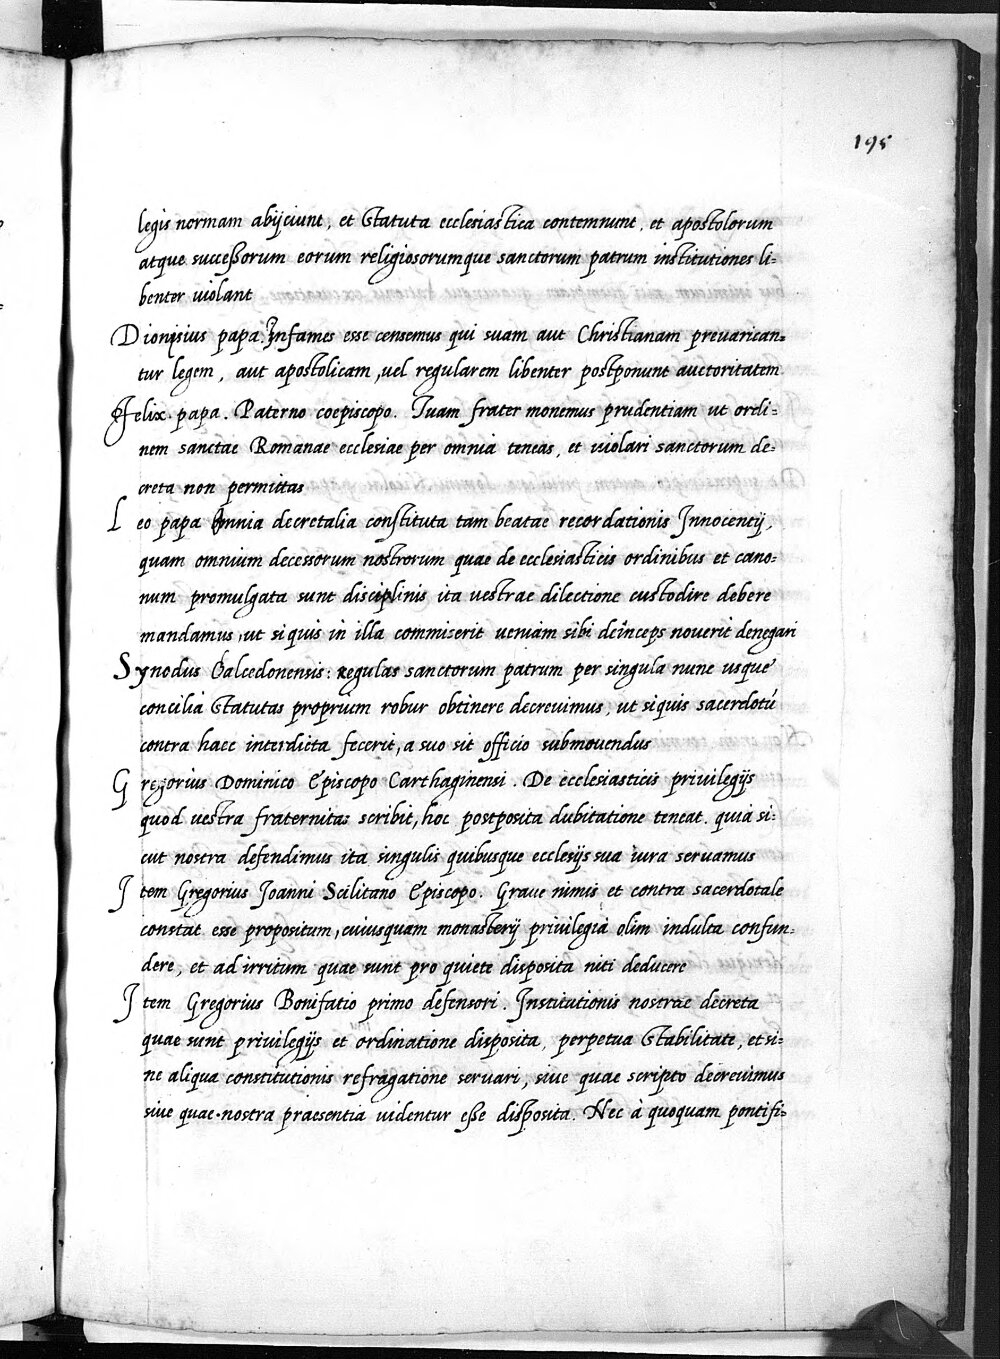 195
legis normam abijciunt, et Statuta ecclesiastica contemnunt, et apostolorum
atque successorum eorum religiosorumque sanctorum patrum institutiones li-
benter violant
Dionisius papa. Infames esse censemus qui suam aut Christianam prevarican-
tur legem, aut apostolicam, vel regularem libenter postponunt auctoritatem
Felix papa. Paterno coepiscopo. Tuam frater monemus prudentiam ut ordi-
nem sanctae Romanae ecclesiae per omnia teneas, et violari sanctorum de-
creta non permittas
Leo papa Omnia decretalia constituta tam beatae recordationis Innocentij,
quam omnium decessorum nostrorum quae de ecclesiasticis ordinibus et cano-
num promulgata sunt disciplinis ita vestrae dilectione custodire debere
mandamus, ut siquis in illa commiserit veniam sibi deinceps noverit denegari
Synodus Calcedonensis: regulas sanctorum patrum per singula nunc usque
concilia Statutas proprium robur obtinere decrevimus, ut siquis sacerdotū
contra haec interdicta fecerit, a suo sit officio submovendus
Gregorius Dominico Episcopo Carthaginensi. De ecclesiasticis privilegijs
quod vestra fraternitas scribit, hoc postposita dubitatione teneat. quia si-
cut nostra defendimus ita singulis quibusque ecclesijs sua iura servamus
Item Gregorius Joanni Scilitano Episcopo. Grave nimis et contra sacerdotale
constat esse propositum, cuiusquam monasterij privilegia olim indulta confun-
dere, et ad irritum quae sunt pro quiete disposita niti deducere
Item Gregorius Bonifatio primo defensori. Institutionis nostrae decreta
quae sunt privilegijs et ordinatione disposita, perpetua Stabilitate, et si-
ne aliqua constitutionis refragatione servari, sive quae scripto decrevimus
sive quae nostra praesentia videntur esse disposita. Nec à quoquam pontifi-